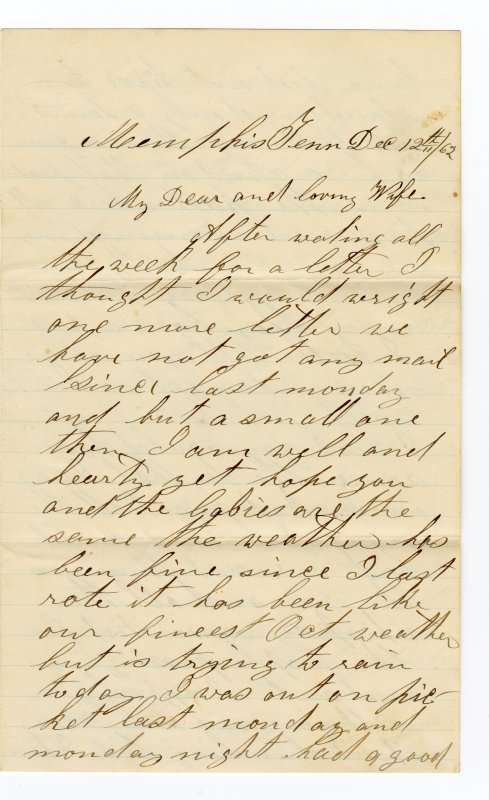 Memphis Tenn Dec 12th/62
My Dear and loving Wife
After wating all
the week for a letter I
thought I would wright
one more letter we
have not got any mail
since last monday
and but a small one
then I am well and
hearty yet hope you
and the babies are the
same the weather has
been fine since I last
rote it has been like
our fineest Oct weather
but is trying to rain
to day I was out on pic-
ket last monday and
monday night had a good